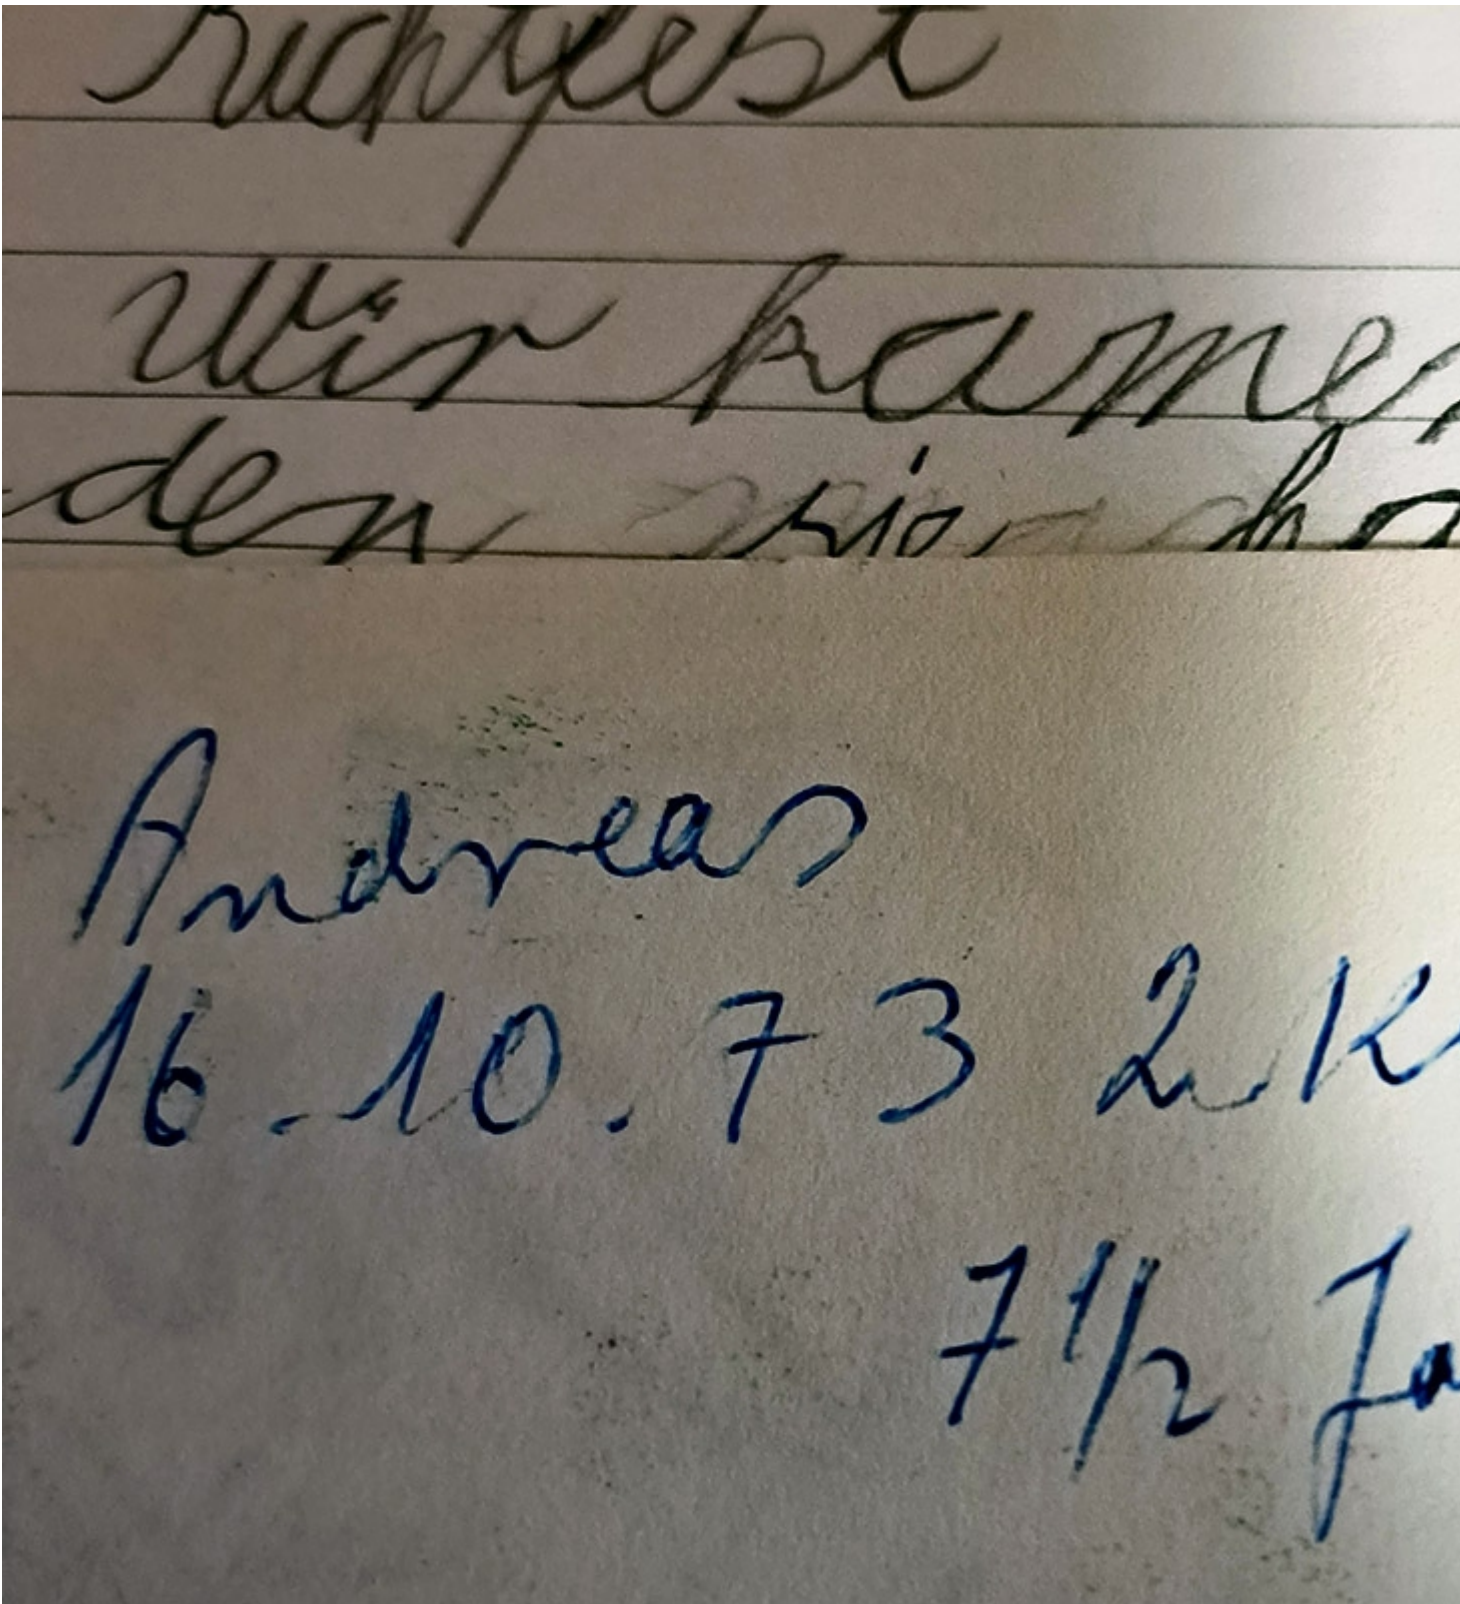 richtfest
Wir kamen
den
Andreas
16.10.73 2.K
7 1/2 Ja